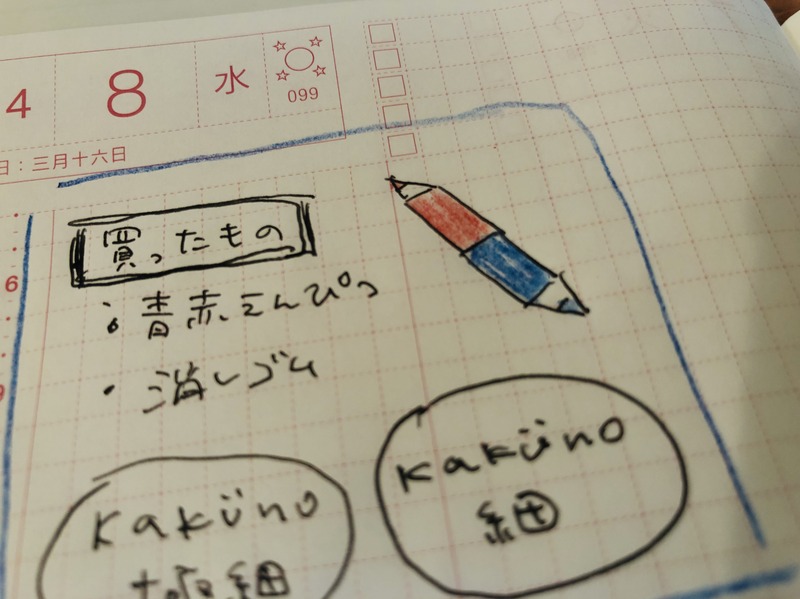 4 8 水 099
日:三月十六日
6
買ったもの
・青赤えんぴつ
・消しゴム
Kaküno
細
Kaküno
極細